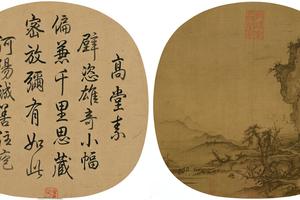 高堂素
壁恣雄奇小幅
偏兼千里思藏
密放彌有如此
河陽誠善